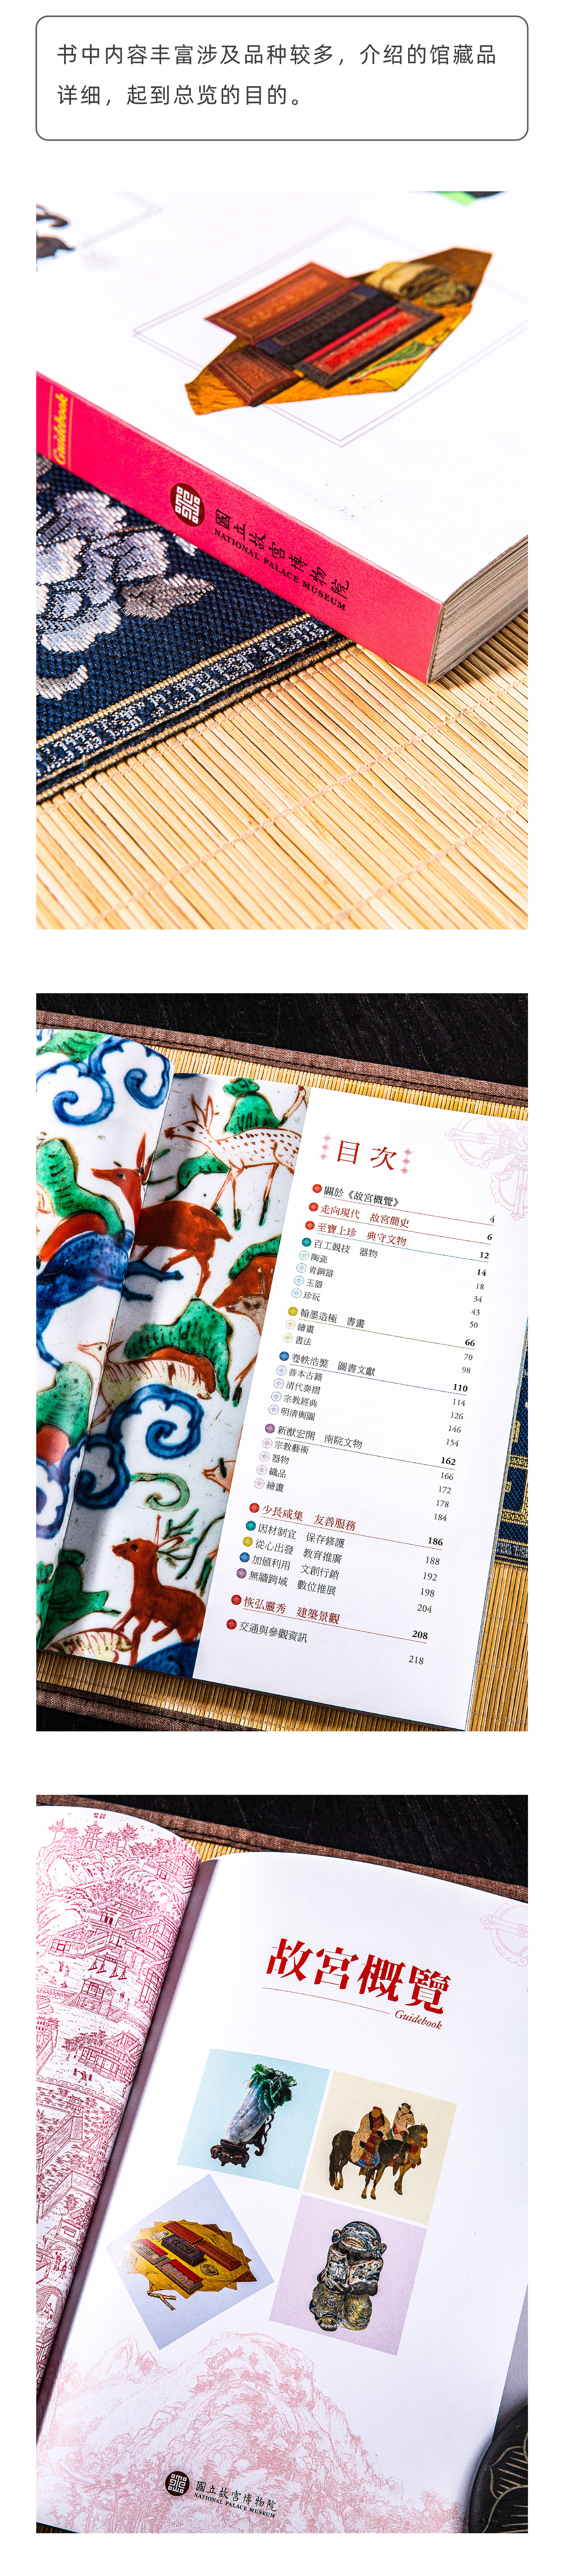 书中内容丰富涉及品种较多，介绍的馆藏品
详细，起到总览的目的。
Guidebook
國立故宮博物院
NATIONAL PALACE MUSEUM
目次
關於《故宮概覽》 4
走向現代 故宮簡史 6
至寶上珍 典守文物 12
百工競技 器物 14
陶瓷 18
青銅器 34
玉器 43
珍玩 50
翰墨造極 書畫 66
繪畫 70
書法 98
卷帙浩繁 圖書文獻 110
善本古籍 114
清代奏摺 126
宗教經典 146
明清輿圖 154
新猷宏開 南院文物 162
宗教藝術 166
器物 172
織品 178
繪畫 184
少長咸集 友善服務 186
因材制宜 保存修護 188
從心出發 教育推廣 192
加值利用 文創行銷 198
無牆跨域 數位推展 204
恢弘靈秀 建築景觀 208
交通與參觀資訊 218
故宮概覽
Guidebook
國立故宮博物院
NATIONAL PALACE MUSEUM